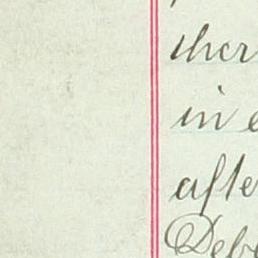 ther
in
after
Debe